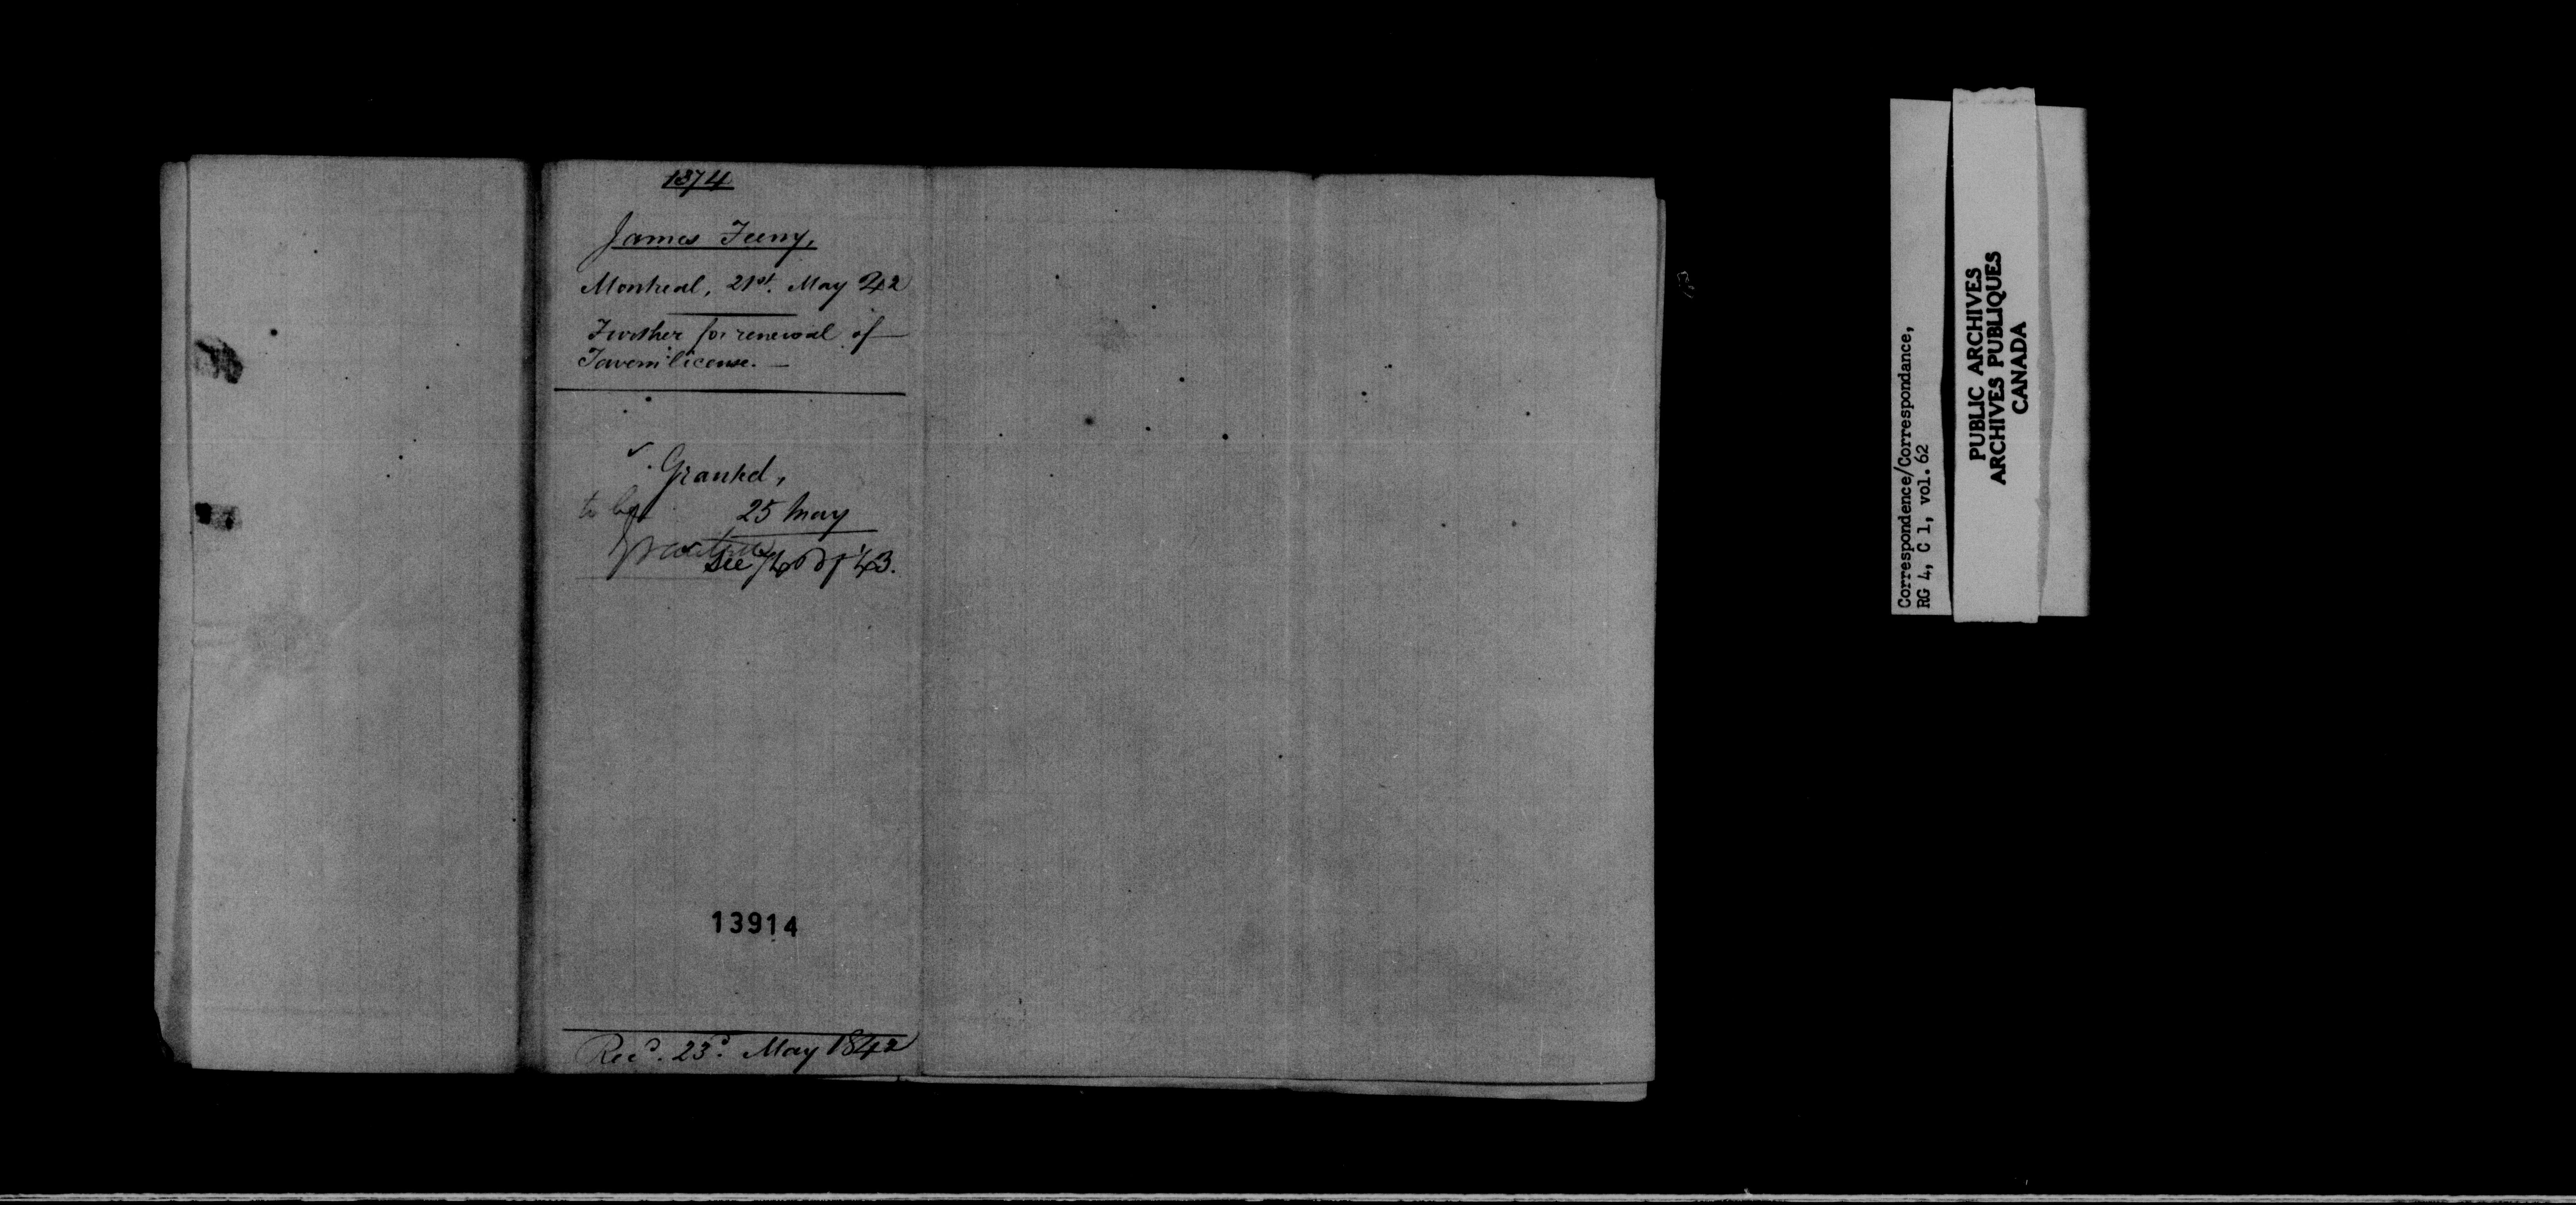 1874
James Feeny,
Montreal, 21st. May 42
Further for renewal of
Tavern license. —
Granted,
to be
25 May
granted
See
43.
13914
Recd. 23d. May 1842
Correspondence/Correspondance,
RG 4, C 1, vol. 62
PUBLIC ARCHIVES
ARCHIVES PUBLIQUES
CANADA